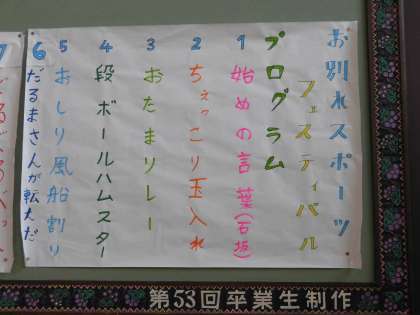 お別れスポーツ
フェスティバル
プログラム
1 始めの言葉(石坂)
2 ちょっこり玉入れ
3 おたまリレー
4 段ボールハムスター
5 おしり風船割り
6 だるまさんが転んだ
7
第53回卒業生制作